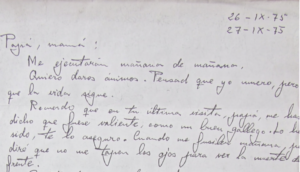 26-IX-75
27-IX-75
Papá, mamá:
Me ejecutarán mañana de mañana.
Quiero daros ánimos. Pensad que yo muero, pero
que la vida sigue.
Recuerdo que en tu última visita, papá, me habías
dicho que fuese valiente, como un buen gallego. Lo he
sido, te lo aseguro. Cuando me fusilen mañana pediré
diré que no me tapen los ojos para ver la muerte de
frente.